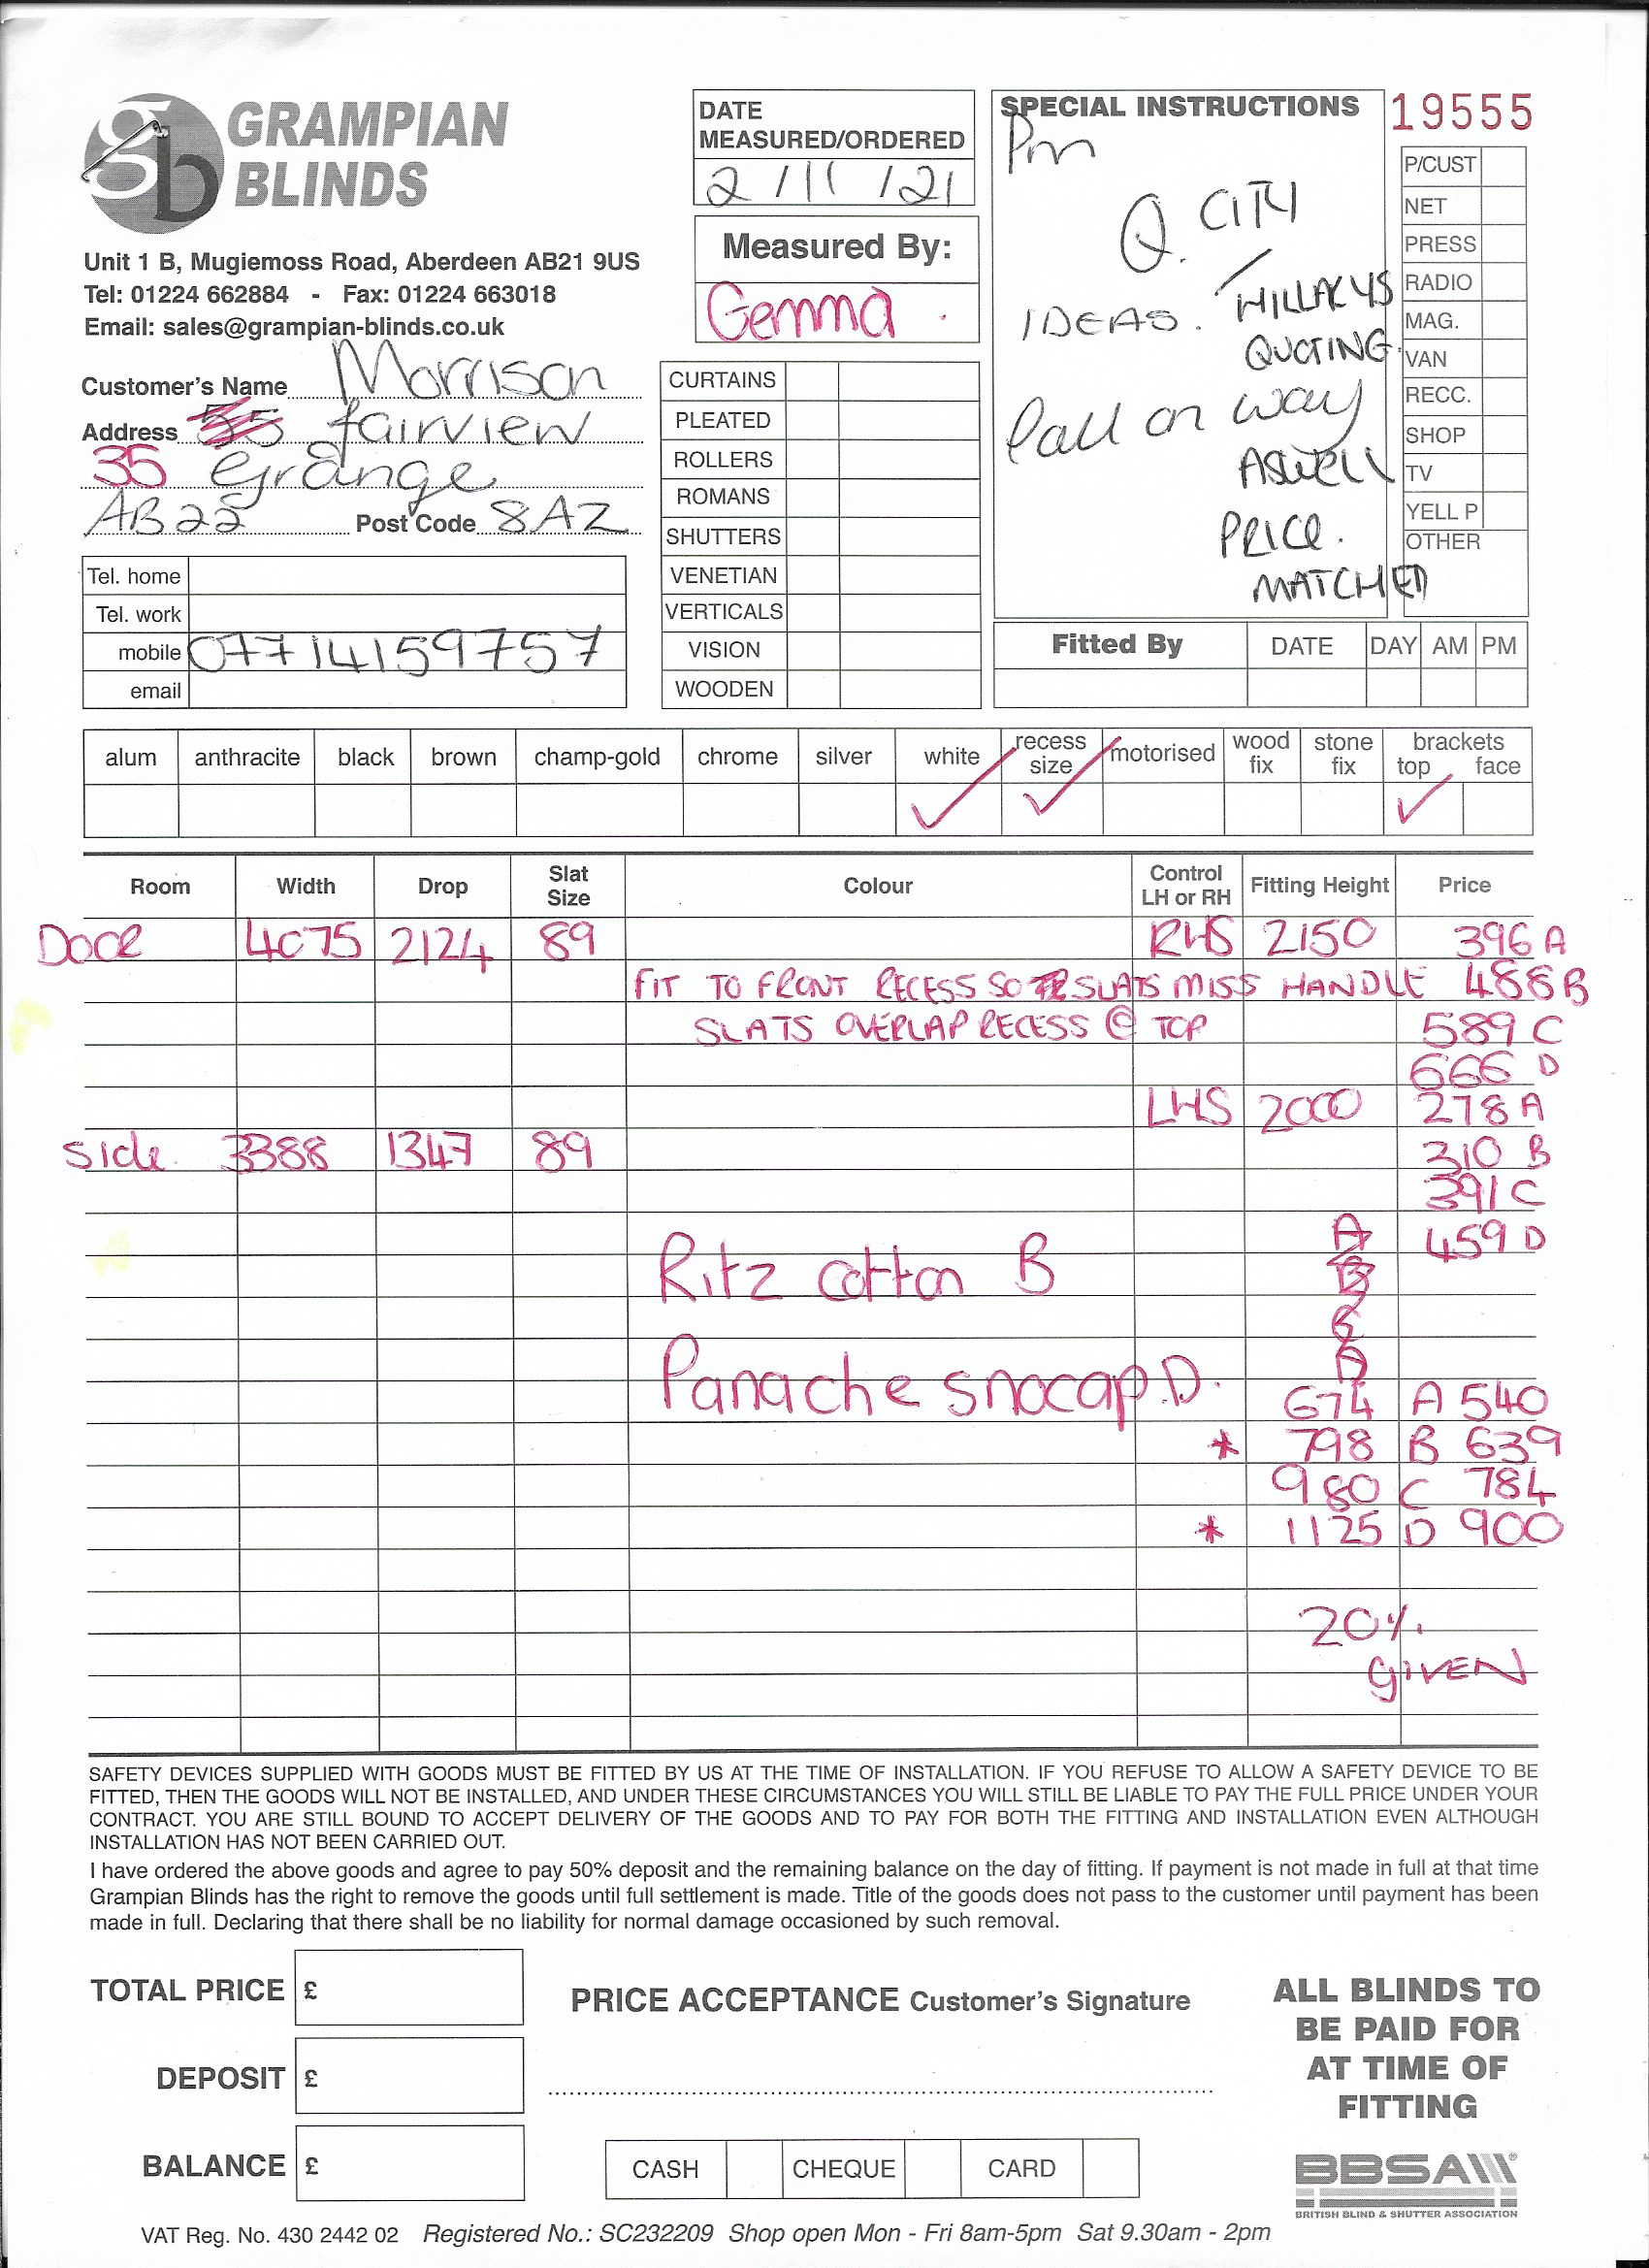 GRAMPIAN
BLINDS
Unit 1 B, Mugiemoss Road, Aberdeen AB21 9US
Tel: 01224 662884 - Fax: 01224 663018
Email: sales@grampian-blinds.co.uk
DATE
MEASURED/ORDERED
2/11/21
Measured By:
Gemma
SPECIAL INSTRUCTIONS
Pm
Q. CITY
IDEAS. HILLARYS
QUOTING
Call on way
ASWELL
PRICE.
MATCHED
19555
P/CUST
NET
PRESS
RADIO
MAG.
VAN
RECC.
SHOP
TV
YELL P
OTHER
Customer's Name Morrison
Address fairview
35 Grange
AB22 Post Code 8AZ
Tel. home
Tel. work
mobile 07714159757
email
CURTAINS
PLEATED
ROLLERS
ROMANS
SHUTTERS
VENETIAN
VERTICALS
VISION
WOODEN
Fitted By DATE DAY AM PM
alum anthracite black brown champ-gold chrome silver white recess size motorised wood fix stone fix brackets top face
Room Width Drop Slat Size Colour Control LH or RH Fitting Height Price
DOOR 4075 2124 89 RHS 2150 396 A
FIT TO FRONT RECESS SO SLATS MISS HANDLE 488 B
SLATS OVERLAP RECESS @ TOP 589 C
666 D
LHS 2000 278 A
Side 3388 1347 89 310 B
391 C
459 D
A
Ritz cotton B B
C
Panache snocap D. D
674 A 540
* 798 B 639
980 C 784
* 1125 D 900
20%
GIVEN
SAFETY DEVICES SUPPLIED WITH GOODS MUST BE FITTED BY US AT THE TIME OF INSTALLATION. IF YOU REFUSE TO ALLOW A SAFETY DEVICE TO BE
FITTED, THEN THE GOODS WILL NOT BE INSTALLED, AND UNDER THESE CIRCUMSTANCES YOU WILL STILL BE LIABLE TO PAY THE FULL PRICE UNDER YOUR
CONTRACT. YOU ARE STILL BOUND TO ACCEPT DELIVERY OF THE GOODS AND TO PAY FOR BOTH THE FITTING AND INSTALLATION EVEN ALTHOUGH
INSTALLATION HAS NOT BEEN CARRIED OUT.
I have ordered the above goods and agree to pay 50% deposit and the remaining balance on the day of fitting. If payment is not made in full at that time
Grampian Blinds has the right to remove the goods until full settlement is made. Title of the goods does not pass to the customer until payment has been
made in full. Declaring that there shall be no liability for normal damage occasioned by such removal.
TOTAL PRICE £
DEPOSIT £
BALANCE £
PRICE ACCEPTANCE Customer's Signature
CASH CHEQUE CARD
ALL BLINDS TO
BE PAID FOR
AT TIME OF
FITTING
BBSA
BRITISH BLIND & SHUTTER ASSOCIATION
VAT Reg. No. 430 2442 02 Registered No.: SC232209 Shop open Mon - Fri 8am-5pm Sat 9.30am - 2pm